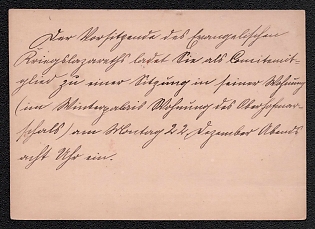 Der Vorsitzende des Evangelischen
Kriegslazareths ladet Sie als Comitemit-
glied zu einer Sitzung in seiner Wohnung
(im Winterpalais Wohnung des Oberhofmar-
schals) am Montag 22 Dezember Abends
acht Uhr ein.